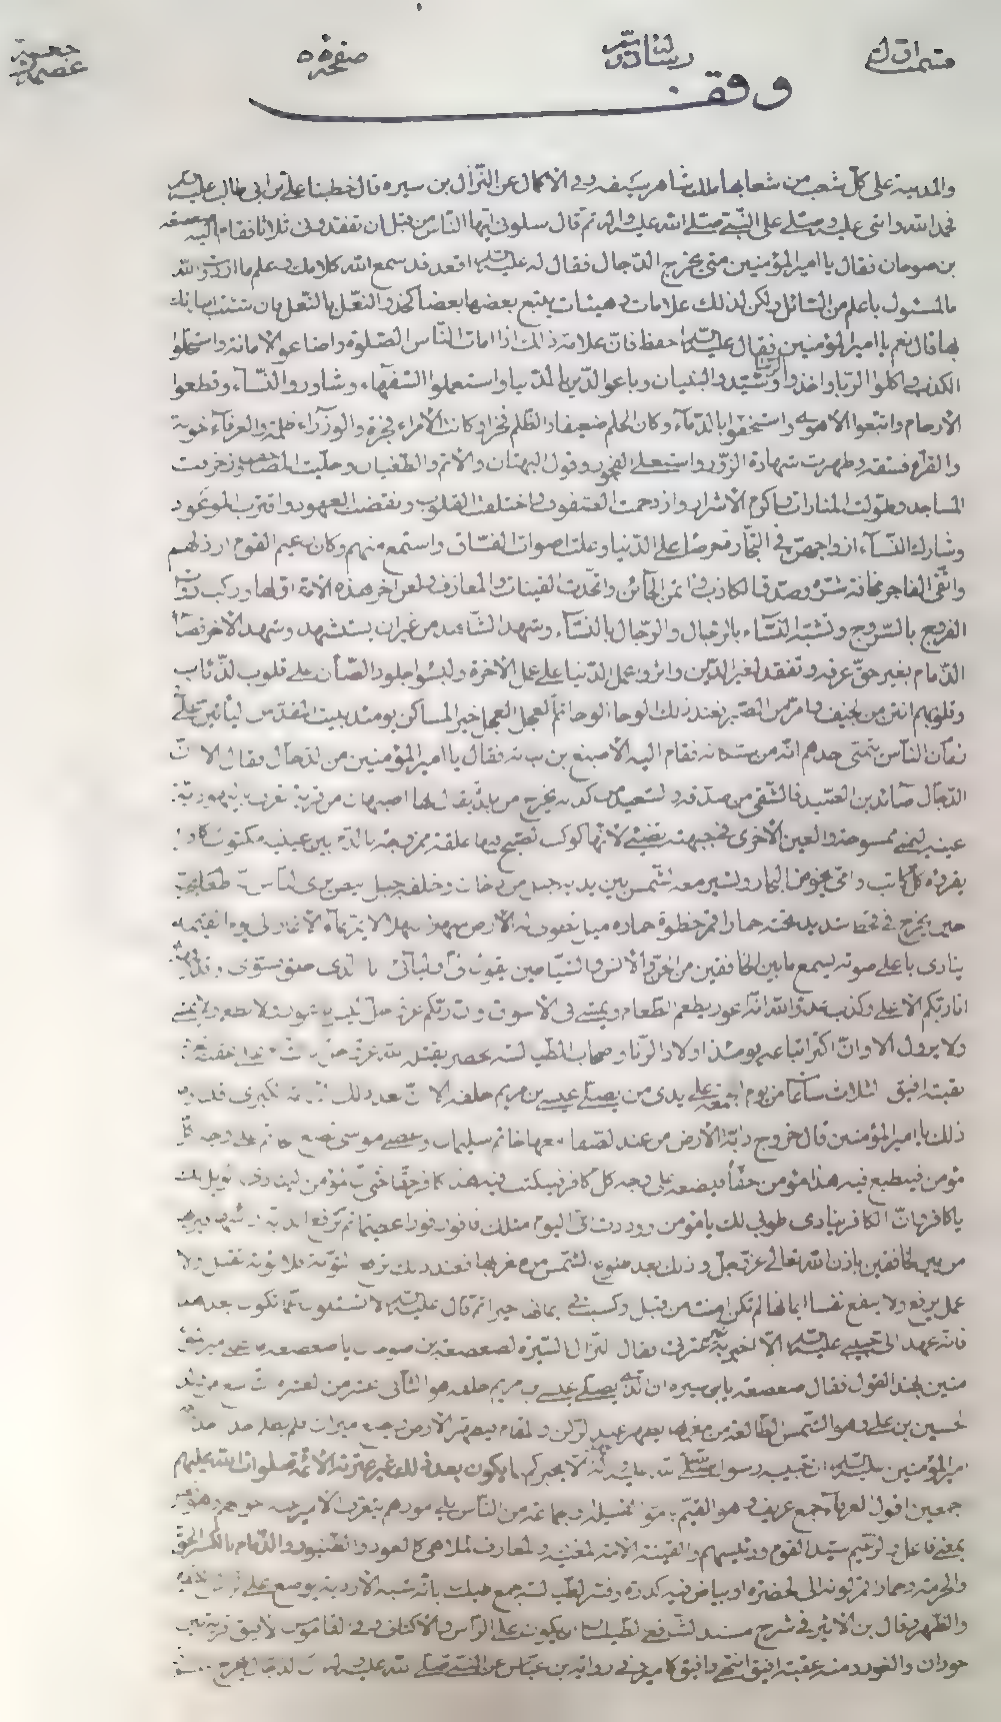 صفحه
وقف
والمدينة على كل شعب من شعابها ملك شاهر سيفه وفي الاكمال عن النزال بن سبره قال خطبنا علي بن ابي طالب عليه السلام
فحمد الله واثنى عليه وصلى على النبي صلى الله عليه واله ثم قال سلوني ايها الناس من قبل ان تفقدوني ثلاثا فقام اليه صعصعه
بن صوحان فقال يا امير المؤمنين متى يخرج الدجال فقال له عليه السلام اقعد فقد سمع الله كلامك وعلم ما اردت والله
مالمسئول باعلم من السائل ولكن لذلك علامات وهيئات يتبع بعضها بعضا كحذو النعل بالنعل فان شئت انباتك
بها قال نعم يا امير المؤمنين فقال عليه السلام احفظ فان علامة ذالك اذا امات الناس الصلوة واضاعوا الامانة واستحلوا
الكذب واكلوا الربا واخذوا الرشا وشيدوا البنيان وباعوا الدين بالدنيا واستعملوا السفهاء وشاوروا النساء وقطعوا
الارحام واتبعوا الاهواء واستخفوا بالدماء وكان الحلم ضعيفا والظلم فخرا وكانت الامراء فجرة والوزراء ظلمة والعرفاء خونة
والقراء فسقة وظهرت شهادة الزور واستعلى الفجور وقول البهتان والاثم والطغيان وحليت المصاحف وزخرفت
المساجد وطولت المنارات واكرم الاشرار وازدحمت الصفوف واختلفت القلوب ونقضت العهود واقترب الموعود
وشارك النساء ازواجهن في التجارة حرصا على الدنيا وعلت اصوات الفساق واستمع منهم وكان زعيم القوم ارذلهم
واتقى الفاجر مخافة شره وصدق الكاذب وائتمن الخائن واتخذت القينات والمعازف ولعن اخر هذه الامة اولها وركب ذوات
الفروج السروج وتشبه النساء بالرجال والرجال بالنساء وشهد الشاهد من غير ان يستشهد وشهد الاخر قضاء
الذمام بغير حق عرفه وتفقه لغير الدين واثروا عمل الدنيا على عمل الاخرة ولبسوا جلود الضأن على قلوب الذئاب
وقلوبهم انتن من الجيف وامر من الصبر فعند ذلك الوحا الوحا ثم العجل العجل خير المساكن يومئذ بيت المقدس ليأتين على
الناس يتمنى احدهم انه من سكانه فقام اليه الاصبغ بن نباته فقال يا امير المؤمنين من الدجال فقال الا ان
الدجال صائد بن الصيد فالشقي من صدقه والسعيد من كذبه يخرج من بلدة يقال لها اصبهان من قرية تعرف باليهودية
عينه اليمنى ممسوحة والعين الاخرى في جبهته تضيء كانها كوكب الصبح فيها علقة ممزوجة بالدم بين عينيه مكتوب كافر
يقرؤه كل كاتب وامي يخوض البحار وتسير معه الشمس بين يديه جبل من دخان وخلفه جبل ابيض يرى الناس انه طعام
حين يخرج في قحط شديد تحته حمار اقمر خطوة حماره ميل تطوى له الارض منهلا منهلا لا يمر بماء الا غار الى يوم القيمة
ينادي باعلى صوته يسمع ما بين الخافقين من الجن والانس والشياطين يقول الي اوليائي انا الذي خلق فسوى وقدر فهدى
انا ربكم الاعلى وكذب عدو الله انه اعور يطعم الطعام ويمشي في الاسواق وان ربكم عز وجل ليس باعور ولا يطعم ولا يمشي
ولا يزول الا وان اكثر اتباعه يومئذ اولاد الزنا واصحاب الطيالسة الخضر يقتله الله عز وجل بالشام على عقبة
بعقبة افيق لثلاث ساعات من يوم الجمعة على يدي من يصلي عيسى بن مريم خلفه الا ان بعد ذلك الطامة الكبرى قلنا وما
ذلك يا امير المؤمنين قال خروج دابة الارض من عند الصفا معها خاتم سليمان وعصى موسى تضع الخاتم على وجه كل
مؤمن فيطبع فيه هذا مؤمن حقا ويضعه على وجه كل كافر فيكتب فيه هذا كافر حقا حتى ان المؤمن لينادي الويل لك
يا كافر وان الكافر ينادي طوبى لك يا مؤمن وددت اني اليوم مثلك فافوز فوزا عظيما ثم ترفع الدابة راسها فيراها
من بين الخافقين باذن الله تعالى عز وجل وذلك بعد طلوع الشمس من مغربها فعند ذلك ترفع التوبة فلا توبة تقبل ولا
عمل يرفع ولا ينفع نفسا ايمانها لم تكن امنت من قبل او كسبت في ايمانها خيرا ثم قال عليه السلام لا تسئلوني عما يكون بعد هذا
فانه عهد الي حبيبي عليه السلام الا اخبر به غير عترتي فقال النزال بن سبرة لصعصعة بن صوحان يا صعصعة ما عنى امير المؤ
منين بهذا القول فقال صعصعة يابن سبره ان الذي يصلي عيسى بن مريم خلفه هو الثاني عشر من العترة التاسع من ولد
الحسين بن علي وهو الشمس الطالعة من مغربها يظهر عند الركن والمقام فيطهر الارض ويضع ميزان العدل فلا يظلم احد احدا
امير المؤمنين عليه السلام ان حبيبه رسول الله صلى الله عليه واله الا يخبر بما يكون بعد ذلك غير عترته الائمة صلوات الله عليهم
اجمعين اقول العرفاء جمع عريف وهو القيم بامور القبيلة او جماعة من الناس يلي امورهم يتعرف الامير منه احوالهم وهو فعيل
بمعنى فاعل والزعيم سيد القوم ورئيسهم والقينة الامة المغنية والمعازف الملاهي كالعود والطنبور والذمام بالكسر الحق
والحرمة وحمار اقمر لونه الى الخضرة او بياض فيه كدرة وقمر الطيالسة جمع طيلسان شبه الاردية يوضع على الراس
والظهر وقال بن الاثير في شرح مسند الشافعي الطيلسان يكون على الراس والاكتاف وفي القاموس افيق قرية بين
حوران والغور ومنه عقبة افيق انتهى وافيق كامير وفي رواية بن عباس عن النبي صلى الله عليه واله ان الدجال يخرج